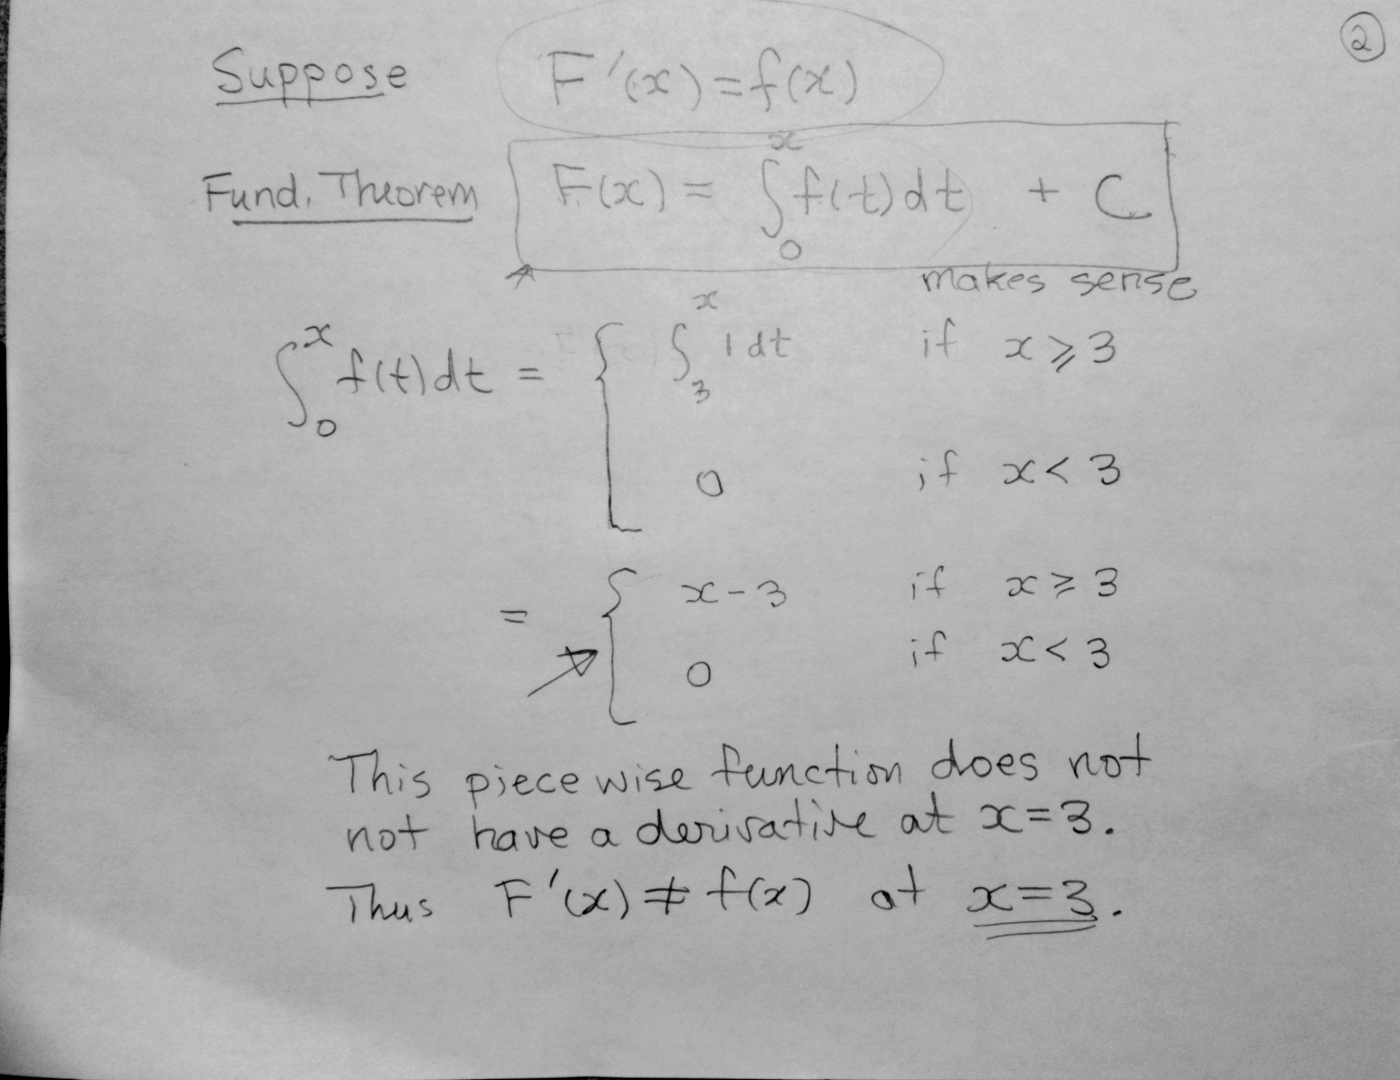 ②
Suppose F'(x) = f(x)
Fund. Theorem F(x) = ∫₀ˣ f(t)dt + C
makes sense
∫₀ˣ f(t)dt = { ∫₃ˣ 1 dt if x ⩾ 3
0 if x < 3
= { x - 3 if x ⩾ 3
0 if x < 3
This piecewise function does not
not have a derivative at x = 3.
Thus F'(x) ≠ f(x) at x = 3.